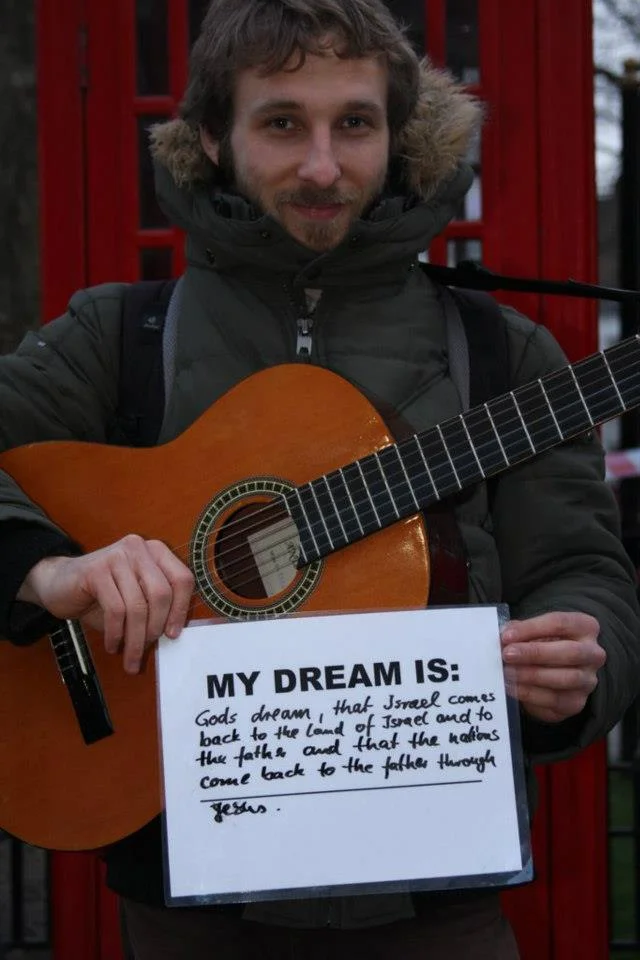 MY DREAM IS:
Gods dream, that Israel comes
back to the land of Israel and to
the father and that the nations
come back to the father through
Jesus.